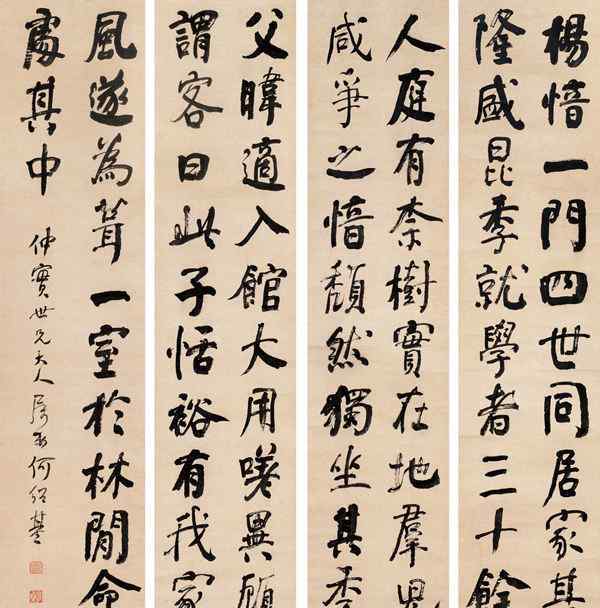 楊愔一門四世同居家甚
隆盛昆季就學者三十餘
人庭有柰樹實在地羣兒
咸爭之愔頹然獨坐其季
父暐適入館大用嗟異顧
謂客曰此子恬裕有我家
風遂為葺一室於林閒命
處其中
仲實世兄大人屬何紹基